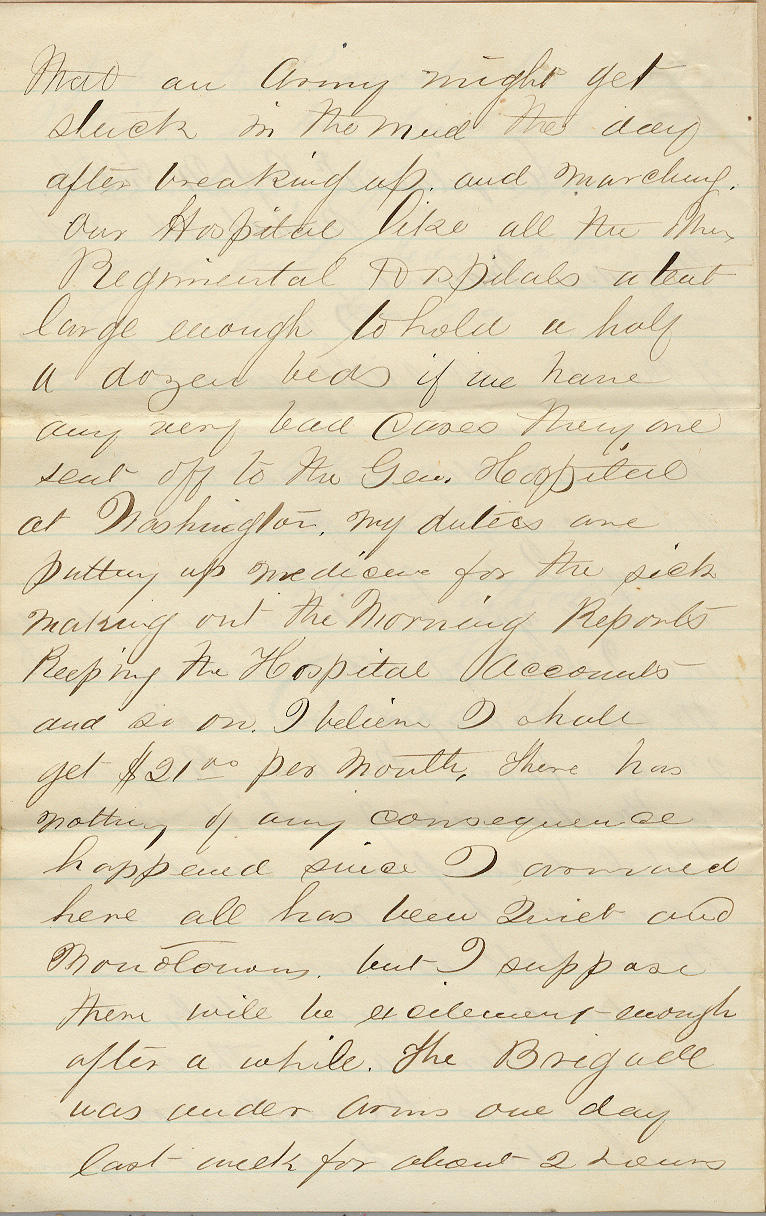 that an Army might get
stuck in the mud the day
after breaking up. and marching.
our Hospital like all the other
Regimental Hospitals a tent
large enough to hold a half
a dozen beds if we have
any very bad Cases they are
sent off to the Gen. Hospital
at Washington. my duties are
putting up medicine for the sick
making out the Morning Reports
Keeping the Hospital Accounts
and so on. I believe I shall
get $21 00 per Month, there has
nothing of any consequence
happened since I arrived
here all has been Quiet and
Monotonous. but I suppose
there will be excitement enough
after a while. The Brigade
was under arms one day
last week for about 2 hours